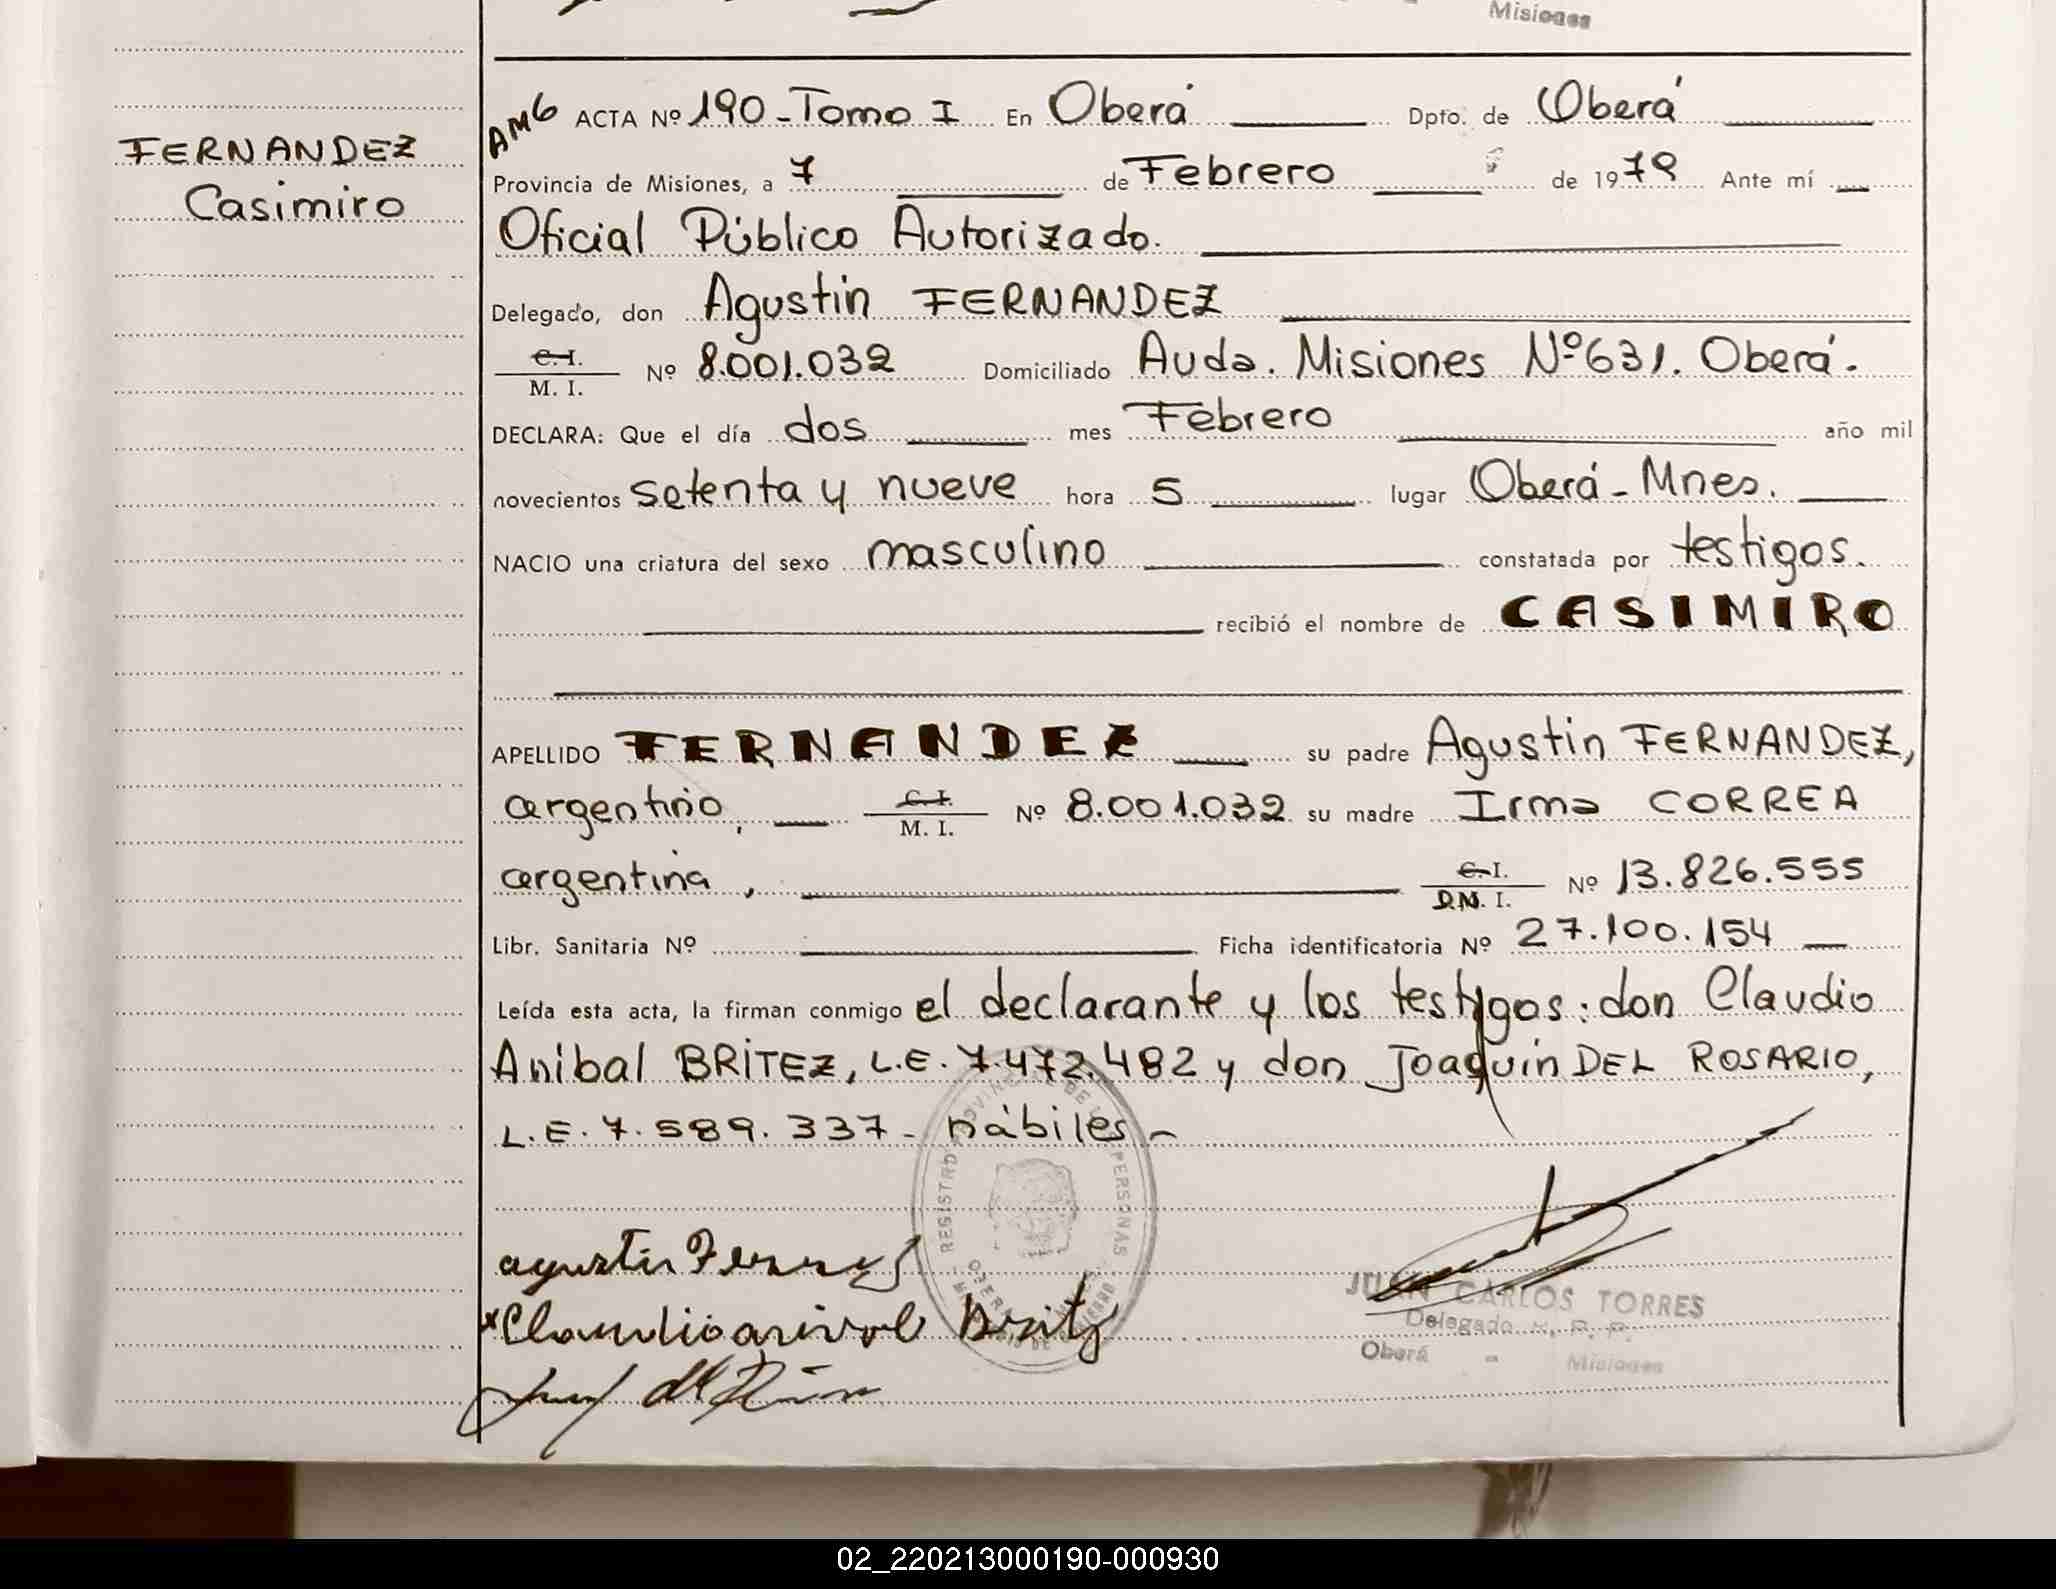 Misiones
FERNANDEZ
Casimiro
AM6 ACTA Nº 190 - Tomo I En Oberá Dpto. de Oberá
Provincia de Misiones, a 7 de Febrero de 1979 Ante mí
Oficial Público Autorizado.
Delegado, don Agustin FERNANDEZ
C.I. / M. I. Nº 8.001.032 Domiciliado Avda. Misiones Nº 631. Oberá.
DECLARA: Que el día dos mes Febrero año mil
novecientos setenta y nueve hora 5 lugar Oberá - Mnes.
NACIO una criatura del sexo masculino constatada por testigos.
recibió el nombre de CASIMIRO
APELLIDO FERNANDEZ su padre Agustin FERNANDEZ,
argentino, C.I. / M. I. Nº 8.001.032 su madre Irma CORREA
argentina, C.I. / D.N. I. Nº 13.826.555
Libr. Sanitaria Nº Ficha identificatoria Nº 27.100.154
Leída esta acta, la firman conmigo el declarante y los testigos: don Claudio
Anibal BRITEZ, L.E. 7.472.482 y don Joaquin DEL ROSARIO,
L.E. 7.589.337 - hábiles -
REGISTRO PROVINCIAL DE LAS PERSONAS
OBERA
agustin
Claudio anival Britz
JUAN CARLOS TORRES
Delegado R. P. P.
Oberá - Misiones
02_220213000190-000930